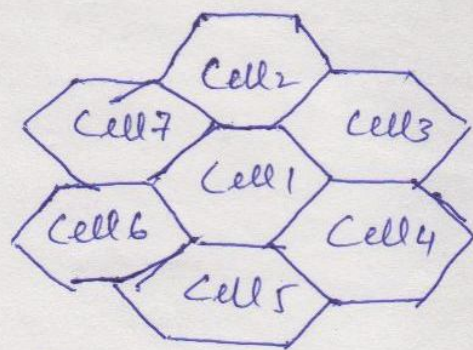 Cell2
Cell7
Cell3
Cell1
Cell6
Cell4
Cell5